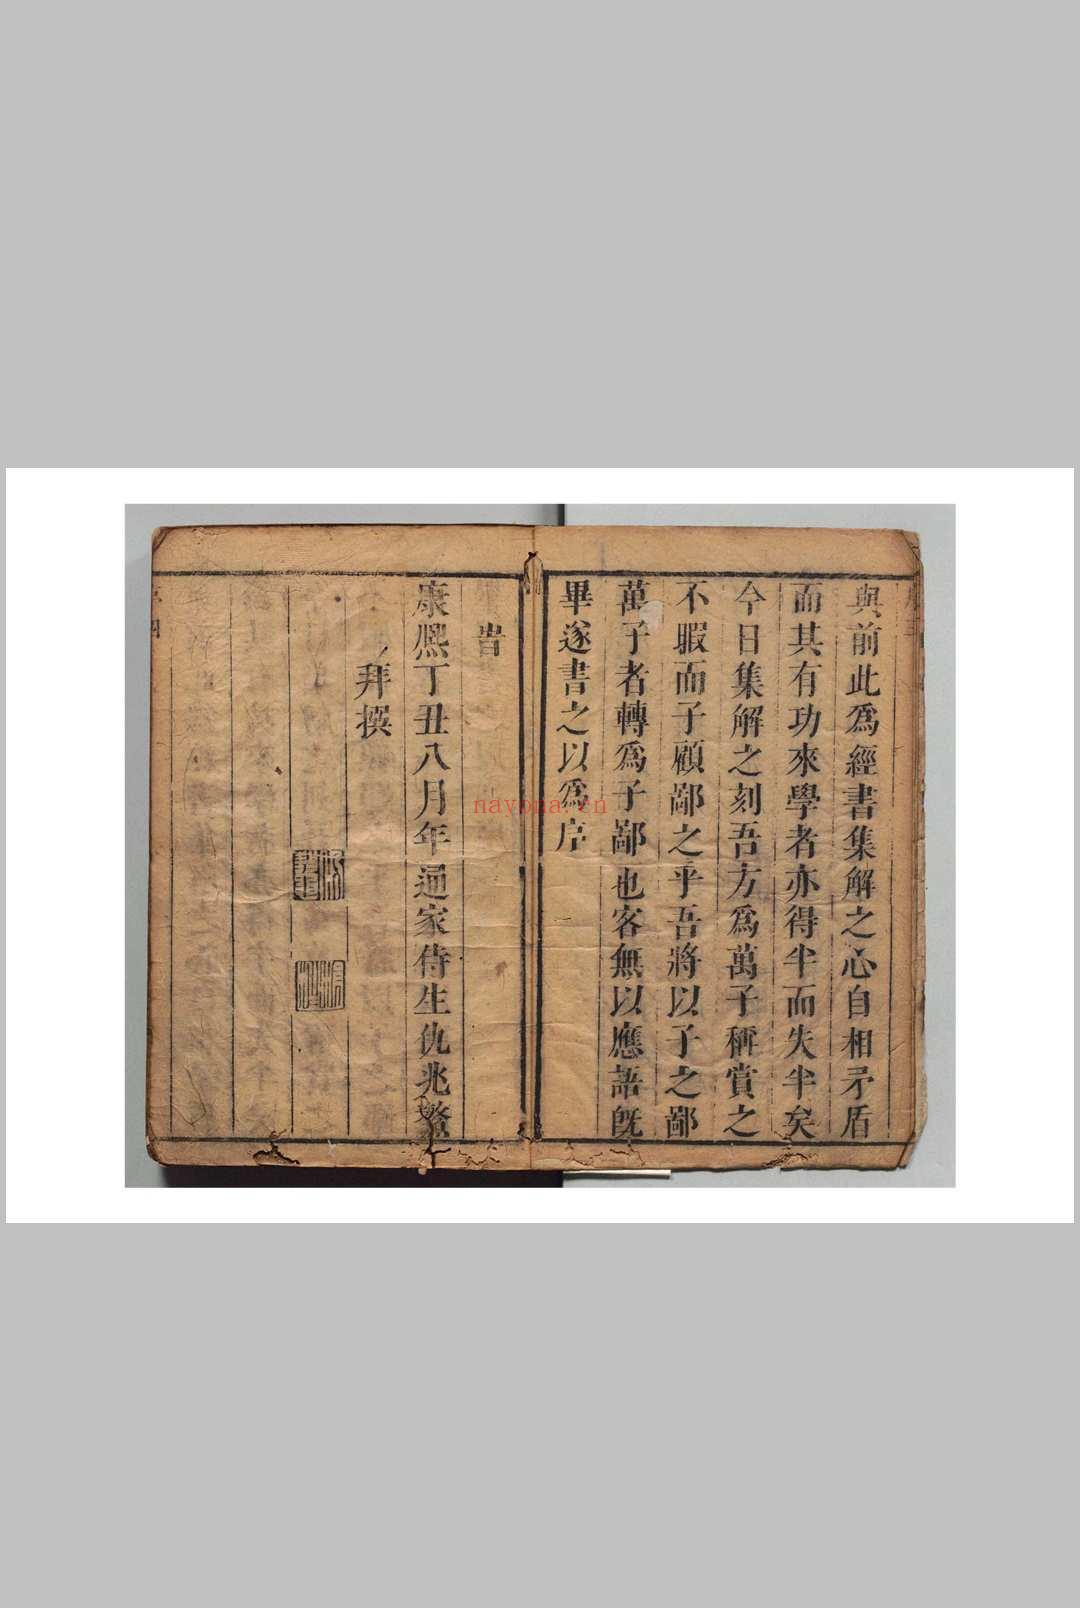 與前此爲經書集解之心自相矛盾
而其有功來學者亦得半而失半矣
今日集解之刻吾方爲萬子稱賞之
不暇而子顧鄙之乎吾將以子之鄙
萬子者轉爲子鄙也客無以應語旣
畢遂書之以爲序
旹
康熙丁丑八月年通家侍生仇兆鰲
拜撰
nayona.cn